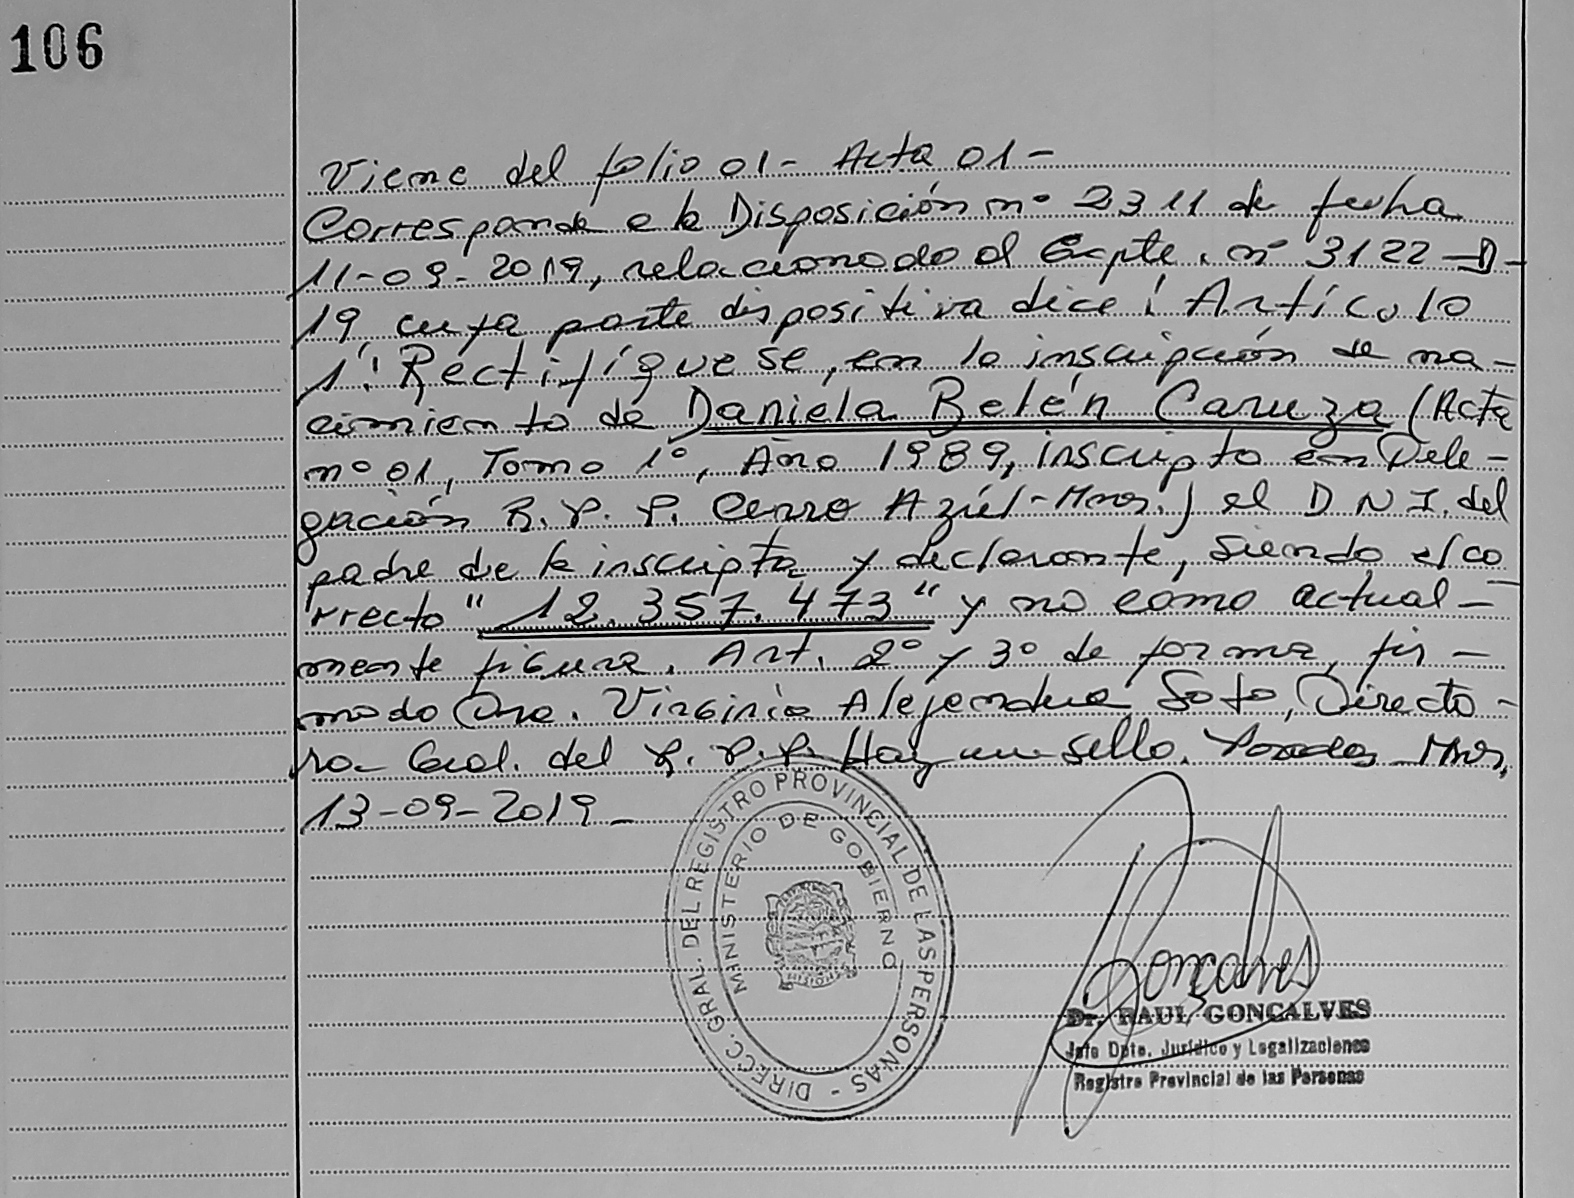 106
Viene del folio 01- Acta 01-
Corresponde a la Disposición nº 2311 de fecha
11-09-2019, relacionado al Expte. nº 3122-D-
19, cuya parte dispositiva dice: Artículo
1º: Rectifíquese, en la inscripción de na-
cimiento de Daniela Belén Caruza (Acta
nº 01, Tomo 1º, Año 1989, inscripta en Dele-
gación R.P.P. Cerro Azúl-Mnes.) el D N I. del
padre de la inscripta y declarante, siendo el co
rrecto "12.357.473" y no como actual-
mente figura. Art. 2º y 3º de forma, fir-
mado Dra. Virginia Alejandra Soto, Directo-
ra Gral. del R.P.P. Hay un sello. Posadas Mnes,
13-09-2019-
DIRECC. GRAL. DEL REGISTRO PROVINCIAL DE LAS PERSONAS -
MINISTERIO DE GOBIERNO
MISIONES
Gonçalves
Dr. RAUL GONCALVES
Jefe Dpto. Jurídico y Legalizaciones
Registro Provincial de las Personas